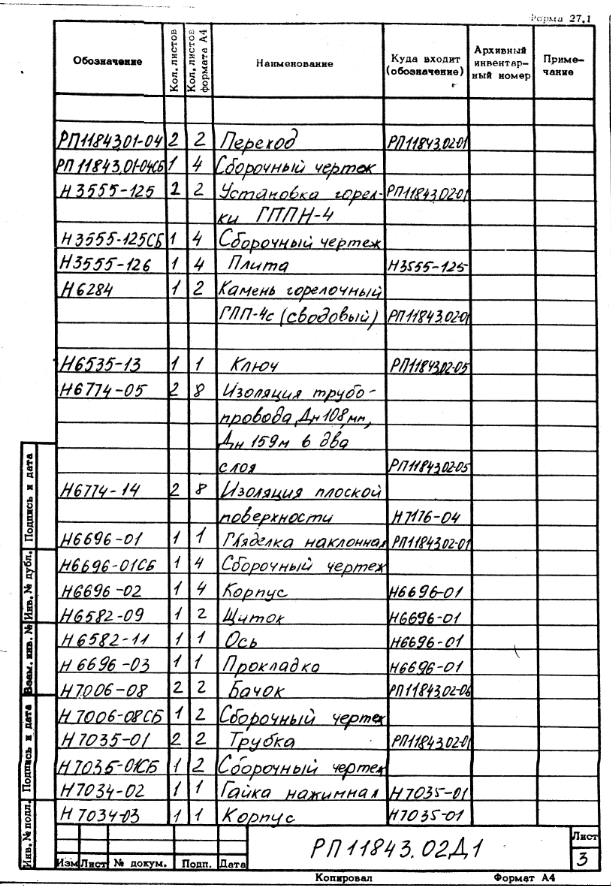 Форма 27.1
Обозначение Кол. листов Кол. листов формата А4 Наименование Куда входит (обозначение) Архивный инвентарный номер Примечание
РП11843.01-04 2 2 Переход РП11843.02-01
РП 11843.01-04СБ 1 4 Сборочный чертеж
Н3555-125 2 2 Установка горел- РП11843.02-01
ки ГППН-4
Н3555-125СБ 1 4 Сборочный чертеж
Н3555-126 1 4 Плита Н3555-125
Н6284 1 2 Камень горелочный
ГПП-4с (сводовый) РП11843.02-01
Н6535-13 1 1 Ключ РП11843.02-05
Н6774-05 2 8 Изоляция трубо-
провода Дн 108мм,
Дн 159м в два
слоя РП11843.02-05
Н6774-14 2 8 Изоляция плоской
поверхности Н7176-04
Н6696-01 1 1 Гляделка наклонная РП11843.02-01
Н6696-01СБ 1 4 Сборочный чертеж
Н6696-02 1 4 Корпус Н6696-01
Н6582-09 1 2 Щиток Н6696-01
Н6582-11 1 1 Ось Н6696-01
Н6696-03 1 1 Прокладка Н6696-01
Н7006-08 2 2 Бачок РП11843.02-06
Н7006-08СБ 1 2 Сборочный чертеж
Н7035-01 2 2 Трубка РП11843.02-01
Н7035-01СБ 1 2 Сборочный чертеж
Н7034-02 1 1 Гайка нажимная Н7035-01
Н7034-03 1 1 Корпус Н7035-01
Инв. № подл. Подпись и дата Взам. инв. № Инв. № дубл. Подпись и дата
РП11843.02Д1
Лист
3
Изм Лист № докум. Подп. Дата
Копировал Формат А4